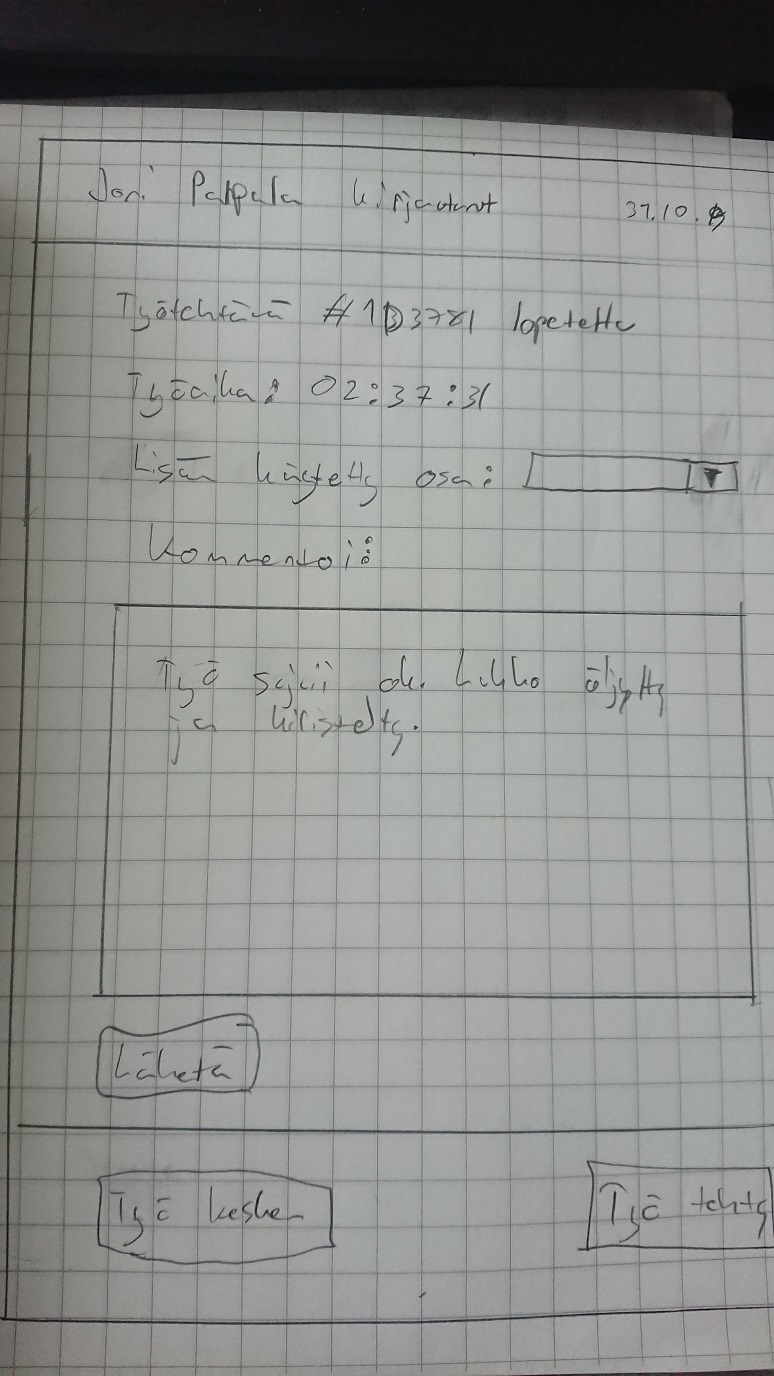 Joni Palpala kirjautunut 31.10.
Työtehtävä # lopetettu
Työaika: 02:37:31
Lisää käytetty osa:
Kommentoi:
Työ sujui ok. Lukko öljytty
ja kiristetty.
Lähetä
Työ kesken
Työ tehty